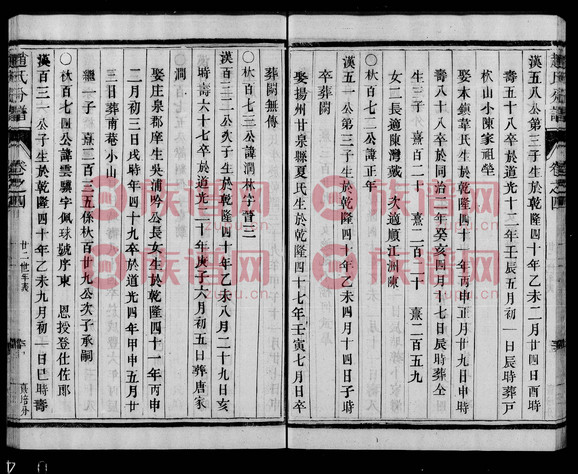 漢五八公第三子生於乾隆四十年乙未二月廿四日酉時
壽五十八卒於道光十二年壬辰五月初一日辰時葬戸
杁山小陳家祖塋
娶本鎮韋氏生於乾隆四十一年丙申正月廿九日申時
壽八十八卒於同治二年癸亥四月十七日辰時葬仝
生三子 熹百二十 熹二百十 熹二百五九
女二長適陳灣戴 次適順江洲陳
〇杁百七二公諱正年
漢五一公第三子生於乾隆四十年乙未四月十四日子時
卒葬闕
娶揚州甘泉縣夏氏生於乾隆四十七年壬寅七月日卒
葬闕無傳
〇杁百七三公諱潤林字萱三
漢百三二公次子生於乾隆四十年乙未八月二十九日亥
時壽六十七卒於道光二十年庚子六月初五日葬唐家
澗
娶庄泉郡庠生吳浦吟公長女生於乾隆四十一年丙申
二月初三日戌時年四十九卒於道光四年甲申五月廿
三日葬南巷小山
繼一子 熹二百三五係杁百廿九公次子承嗣
〇杁百七四公諱雲驥字佩球號序東 恩授登仕佐郎
漢百三一公子生於乾隆四十年乙未九月初一日巳時壽
趙氏分譜
卷之四
廿二世年表
族谱网
zupu.cn